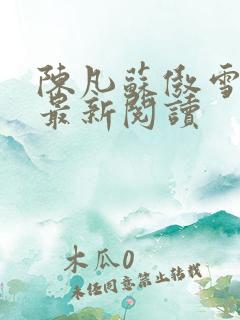 陳凡蘇傲雪
最新閱讀
木瓜0
未經同意禁止轉載